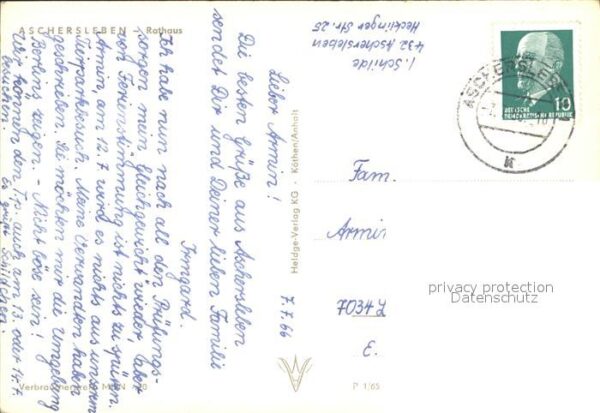 ASCHERSLEBEN Rathaus
I. Schilde
432 Aschersleben
Hecklinger Str. 25
ASCHERSLEBEN
10
DEUTSCHE
DEMOKRATISCHE REPUBLIK
7.7.66
Lieber Armin!
Die besten Grüße aus Aschersleben
sendet Dir und Deiner lieben Familie
Irmgard.
Ich habe nun nach all den Prüfungs-
sorgen mein Gleichgewicht wieder, aber
von Ferienstimmung ist nichts zu spüren.
Armin, am 12.7. wird es nichts aus unserem
Tierparkbesuch. Meine Verwandten haben
geschrieben. Sie möchten mir die Umgebung
Berlins zeigen. - Nicht böse sein!
Wir können den T.P. auch am 13. oder 14.7.
besuchen.
Es grüßt Schildchen.
Heldge-Verlag KG · Köthen/Anhalt
Fam.
Armin
7034 L
E.
privacy protection
Datenschutz
Verbraucherpreis MDN
P 1/65